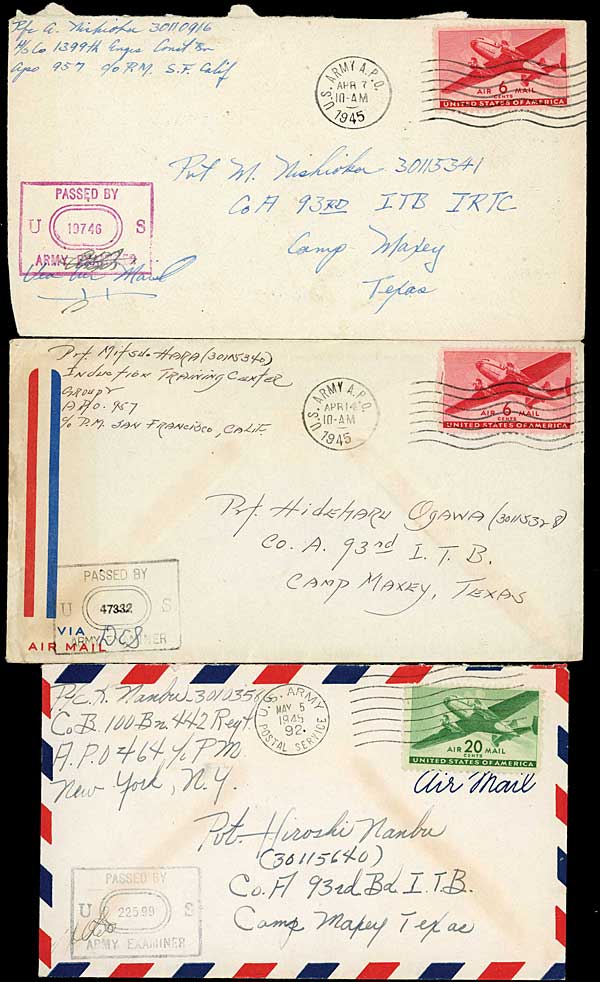 Pfc A. Nishioka 30110916
H/S Co 1399th Engrs Const Bn
Apo 957 c/o P.M. S.F. Calif
U.S. ARMY A.P.O.
APR 7
10-AM
1945
AIR 6 MAIL
CENTS
UNITED STATES OF AMERICA
Pvt M. Nishioka 30115341
Co A 93RD ITB IRTC
Camp Maxey
Texas
PASSED BY
U 19746 S
ARMY EXAMINER
Via Air Mail
Pvt Mitsuo HARA (30115340)
INDUCTION TRAINING CENTER
GROUP
A.P.O. 957
c/o P.M. SAN FRANCISCO, CALIF.
U.S. ARMY A.P.O.
APR 14
10-AM
1945
AIR 6 MAIL
CENTS
UNITED STATES OF AMERICA
Pvt. HIDEHARU OGAWA (30115328)
Co. A. 93rd I.T.B.
CAMP MAXEY, TEXAS
PASSED BY
U 47332 S
ARMY EXAMINER
VIA
AIR MAIL
Pfc. K. Nanbu 3010356
Co B. 100 Bn. 442 Regt.
A.P.O #464 c/o P.M.
New York, N.Y.
U.S. ARMY
MAY 5
1945
92
POSTAL SERVICE
AIR 20 MAIL
CENTS
UNITED STATES OF AMERICA
Air Mail
Pvt. Hiroshi Nanbu
(30115640)
Co. A 93rd Bn I.T.B.
Camp Maxey Texas
PASSED BY
U 22599 S
ARMY EXAMINER